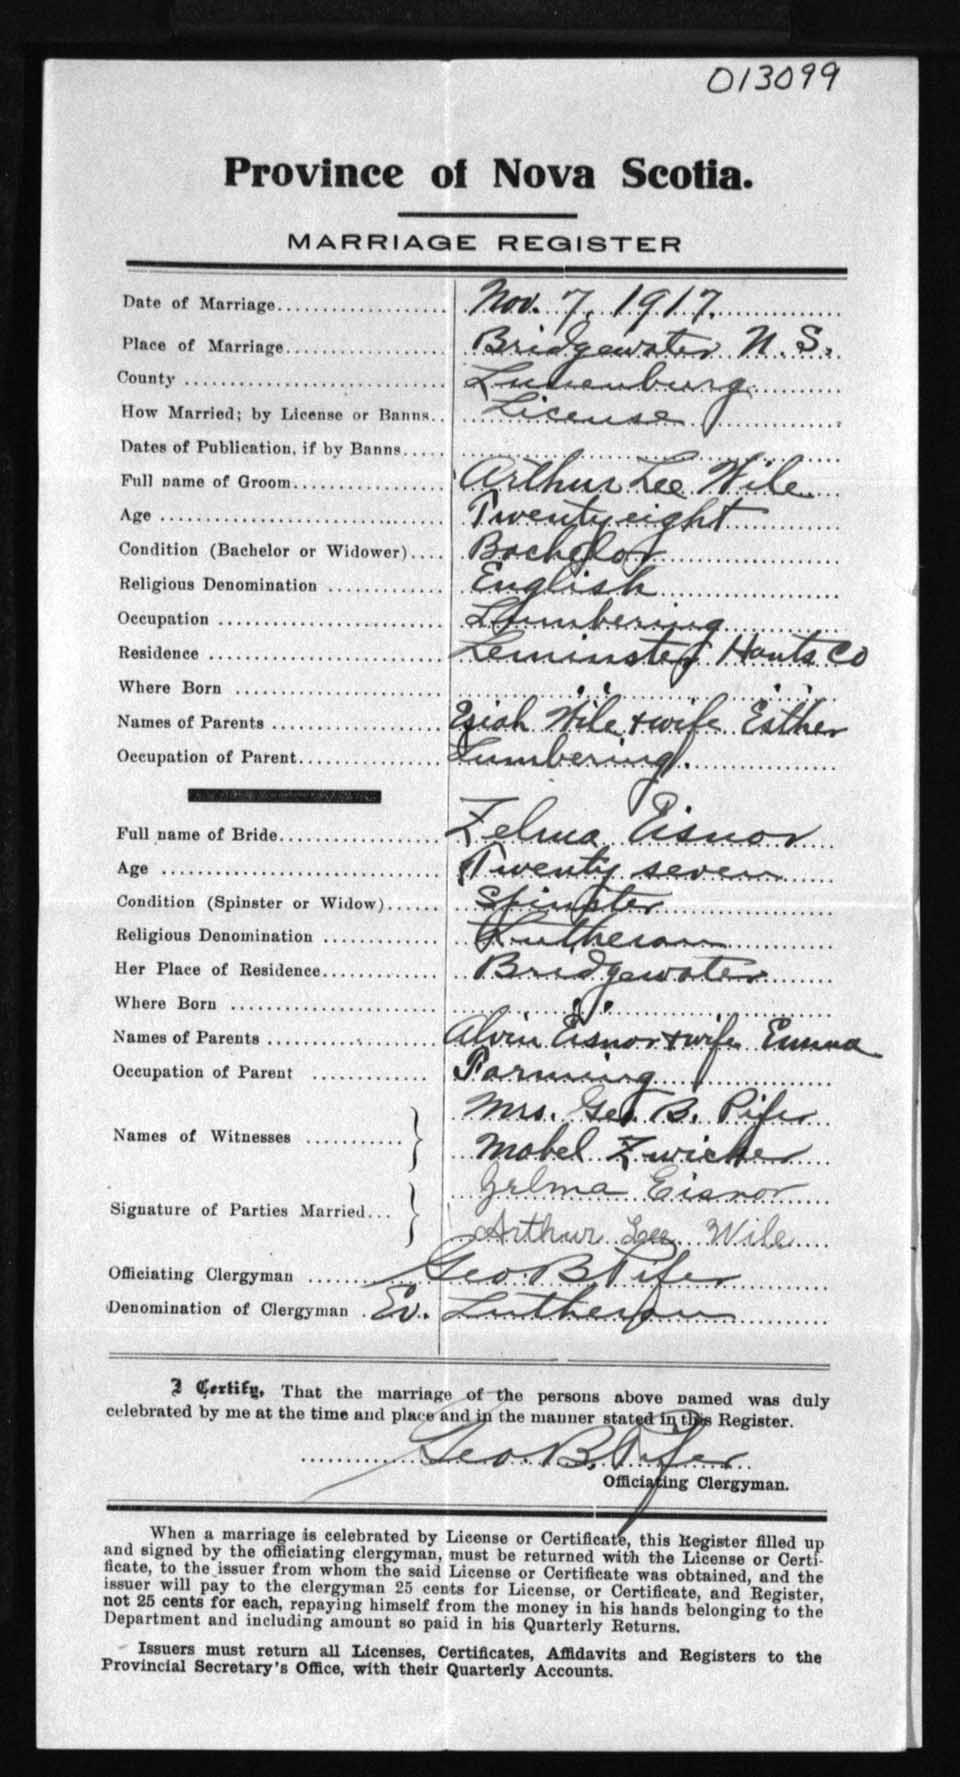 013099
Province of Nova Scotia.
MARRIAGE REGISTER
Date of Marriage Nov. 7, 1917.
Place of Marriage Bridgewater N. S.
County Lunenburg
How Married; by License or Banns License
Dates of Publication, if by Banns
Full name of Groom Arthur Lee Wile
Age Twenty eight
Condition (Bachelor or Widower) Bachelor
Religious Denomination English
Occupation Lumbering
Residence Leminster Hants Co
Where Born " " " "
Names of Parents Esiah Wile + wife Esther
Occupation of Parent Lumbering.
Full name of Bride Zelma Eisnor
Age Twenty seven
Condition (Spinster or Widow) Spinster
Religious Denomination Lutheran
Her Place of Residence Bridgewater
Where Born " "
Names of Parents Alvin Eisnor + wife Emma
Occupation of Parent Farming
Names of Witnesses Mrs. Geo. B. Pifer
Mabel Zwicker
Signature of Parties Married Zelma Eisnor
Arthur Lee Wile
Officiating Clergyman Geo B Pifer
Denomination of Clergyman Ev. Lutheran
I Certify, That the marriage of the persons above named was duly
celebrated by me at the time and place and in the manner stated in this Register.
Geo. B. Pifer
Officiating Clergyman.
When a marriage is celebrated by License or Certificate, this Register filled up
and signed by the officiating clergyman, must be returned with the License or Certi-
ficate, to the issuer from whom the said License or Certificate was obtained, and the
issuer will pay to the clergyman 25 cents for License, or Certificate, and Register,
not 25 cents for each, repaying himself from the money in his hands belonging to the
Department and including amount so paid in his Quarterly Returns.
Issuers must return all Licenses, Certificates, Affidavits and Registers to the
Provincial Secretary's Office, with their Quarterly Accounts.